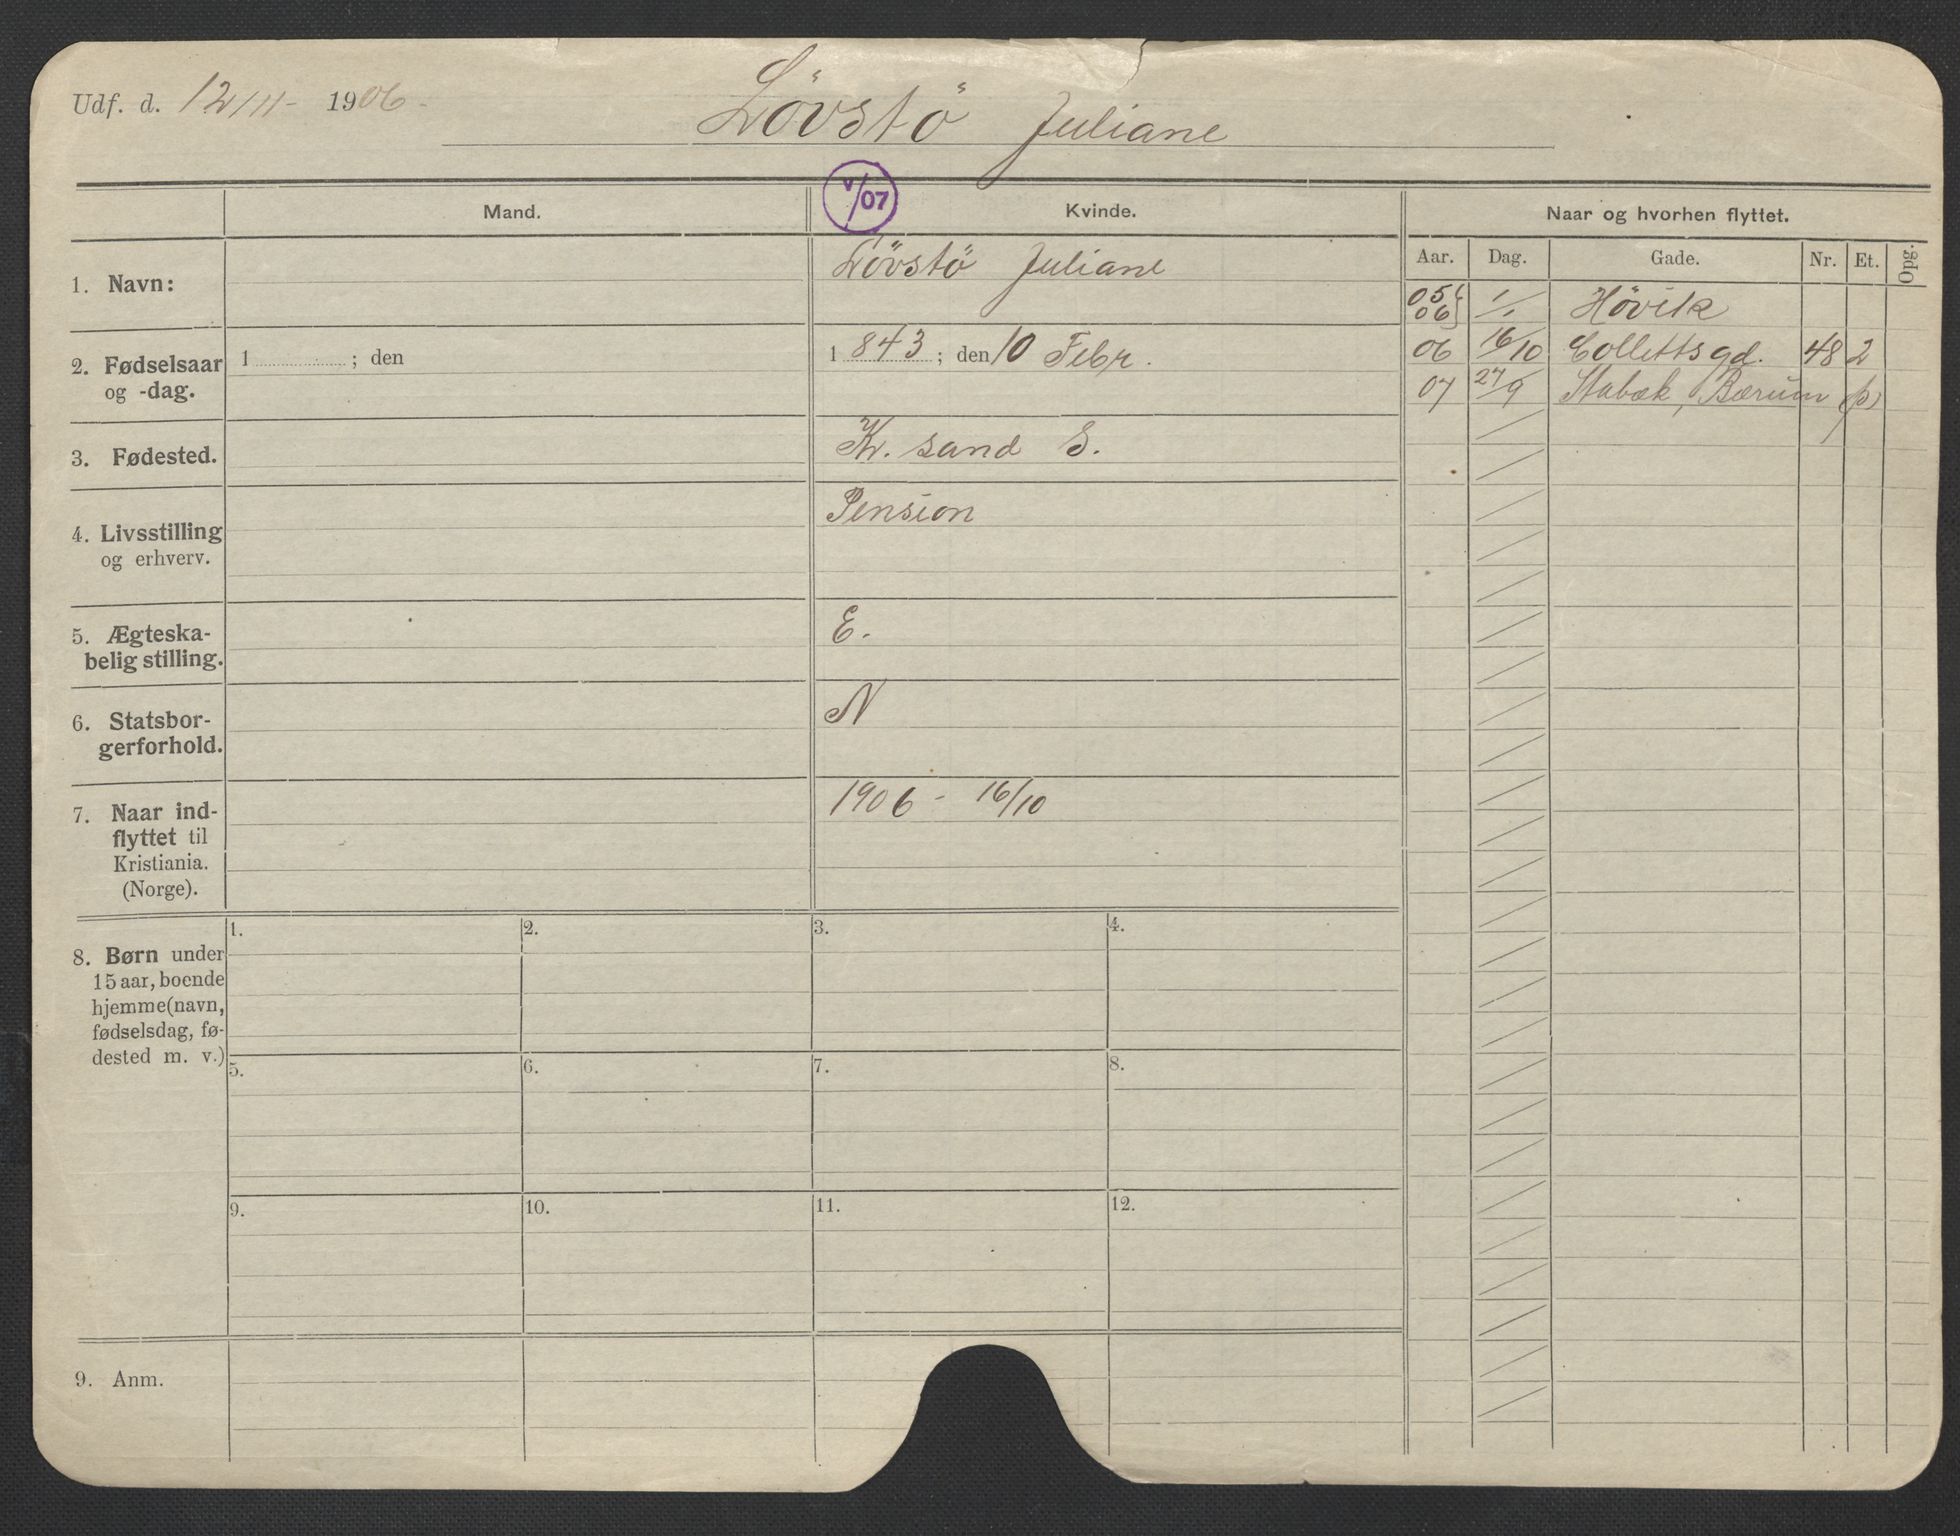 Udf. d. 12/11 - 1906 -
Lövstö Juliane
Mand.
V/07
Kvinde.
Naar og hvorhen flyttet.
Aar. Dag. Gade. Nr. Et. Opg.
1. Navn:
Lövstö Juliane
05 06 1/1 Hövik
06 16/10 Collettsgd. 48 2
07 27/9 Stabæk, Bærum (p)
2. Fødselsaar
og -dag.
1 ; den
1 843 ; den 10 Febr.
3. Fødested.
Kr. sand S.
4. Livsstilling
og erhverv.
Pension
5. Ægteska-
belig stilling.
E.
6. Statsbor-
gerforhold.
N
7. Naar ind-
flyttet til
Kristiania.
(Norge).
1906 - 16/10
8. Børn under
15 aar, boende
hjemme (navn,
fødselsdag, fø-
dested m. v.)
1. 2. 3. 4.
5. 6. 7. 8.
9. 10. 11. 12.
9. Anm.